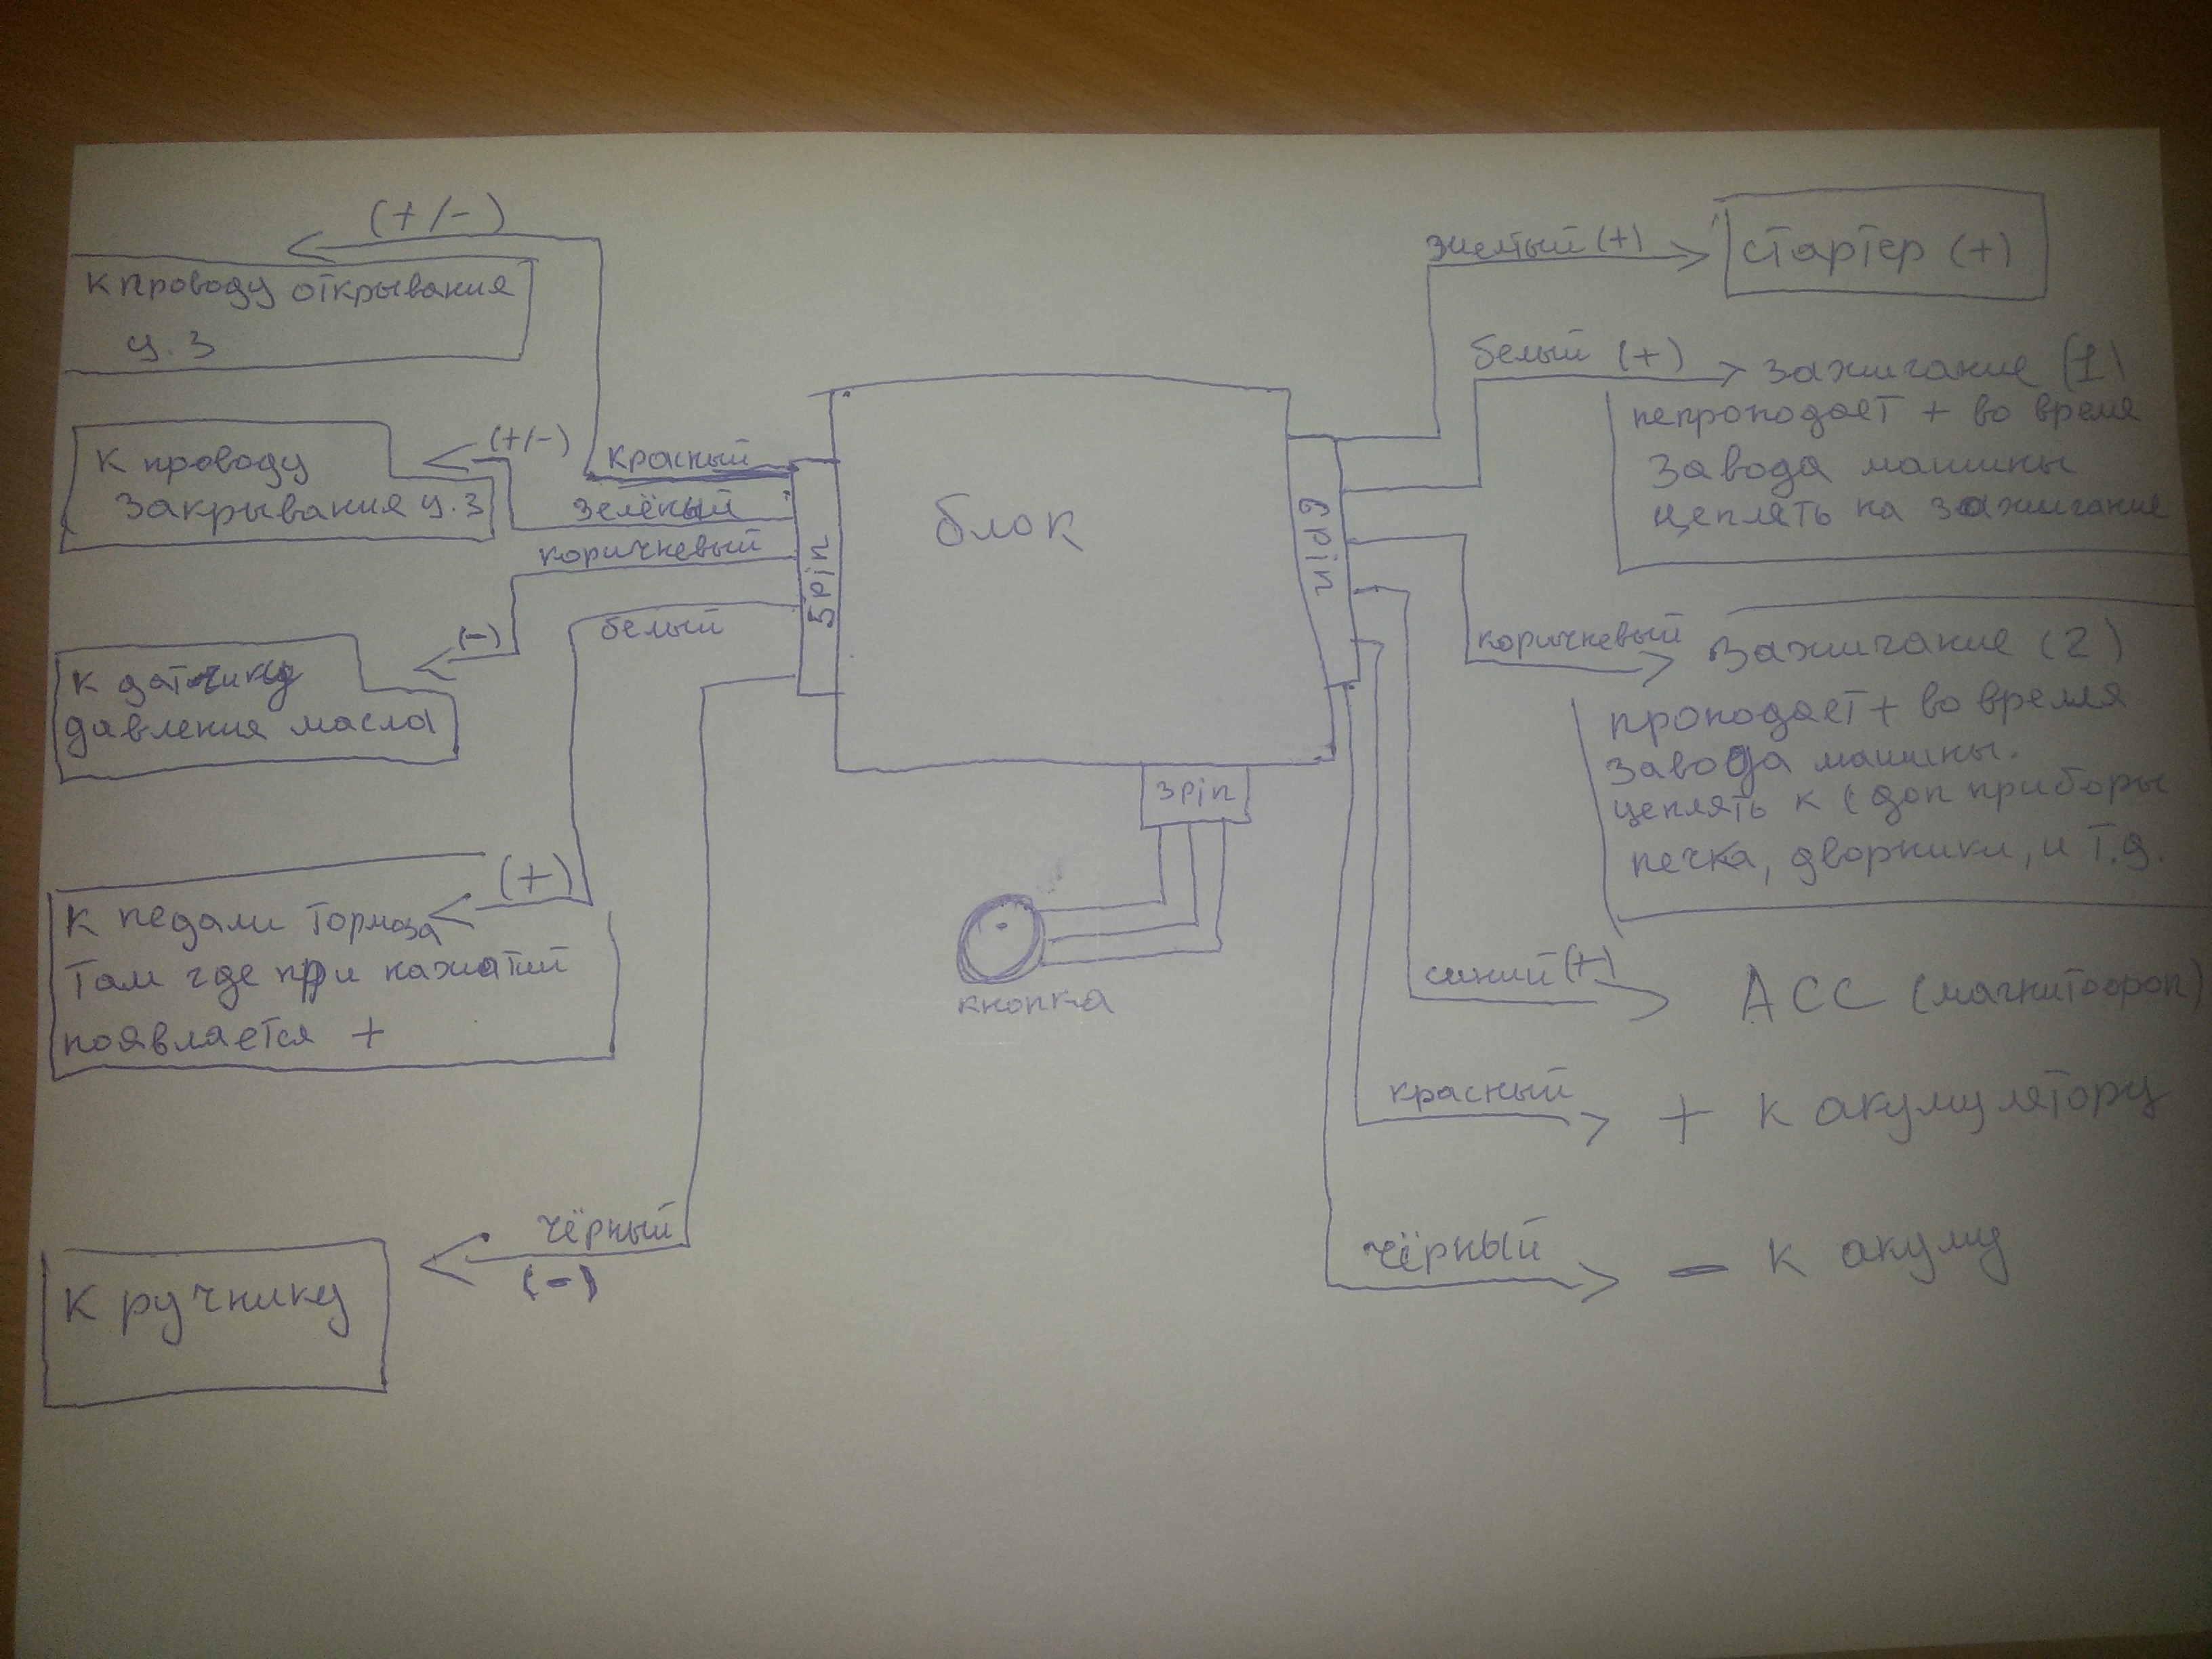 (+/-)
к проводу открывания
ц.з
(+/-)
к проводу
закрывания ц.з
красный
зелёный
коричневый
(-)
белый
к датчику
давления масла
(+)
к педали тормоза
там где при нажатии
появляется +
чёрный
(-)
к ручнику
5pin
блок
6pin
3pin
кнопка
жёлтый (+)
стартер (+)
белый (+)
зажигание (1)
непроподает + во время
завода машины
цеплять на зажигание
коричневый
зажигание (2)
проподает + во время
завода машины.
цеплять к (доп приборы
печка, дворники, и т.д.
синий (+)
АСС (магнитофон)
красный
+ к акумулятору
чёрный
- к акуму